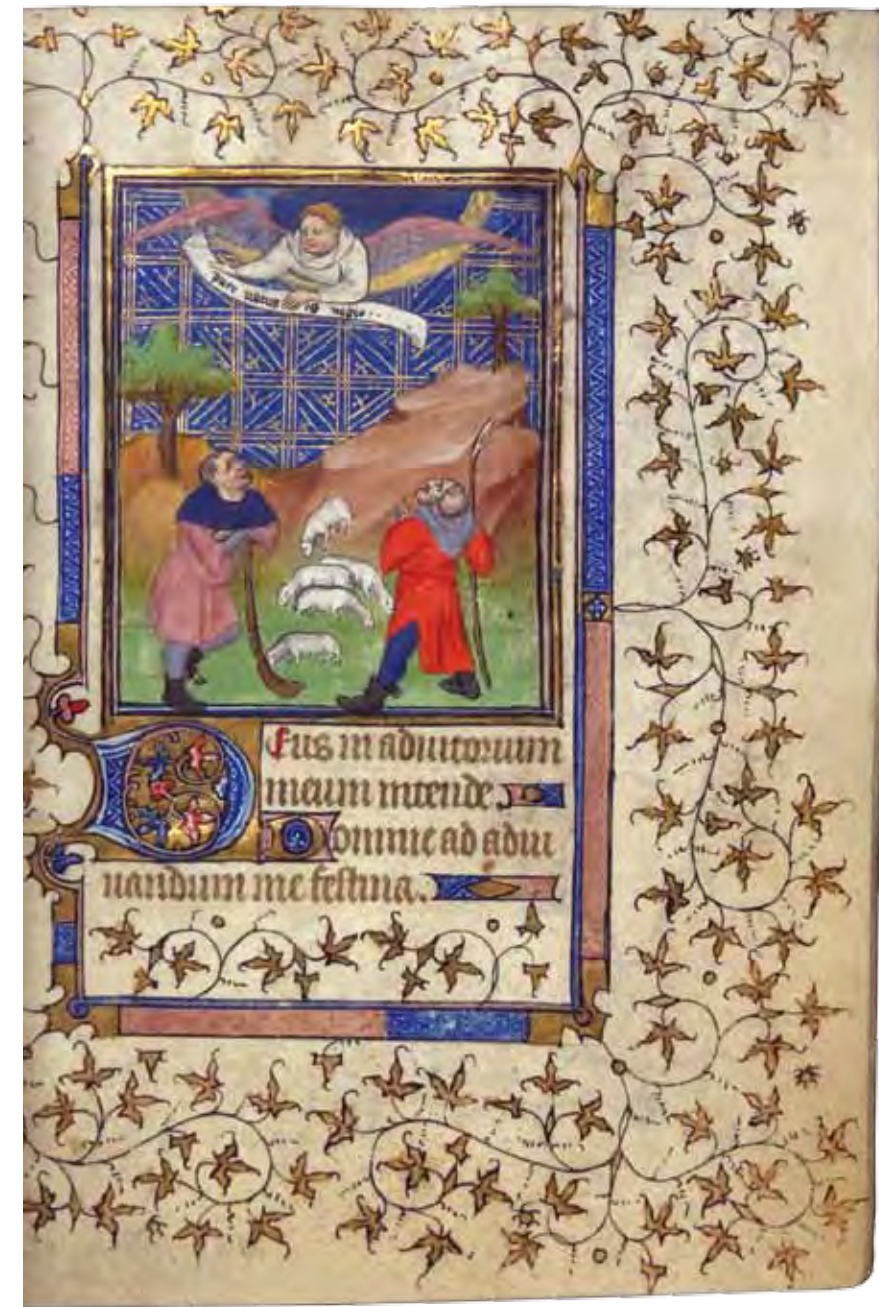 puer natus est
Deus in adiutorium
meum intende.
Domine ad adiu
uandum me festina.